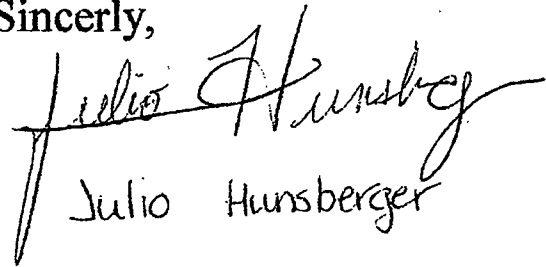 Sincerly,
Julio Hunsberg
Julio Hunsberger